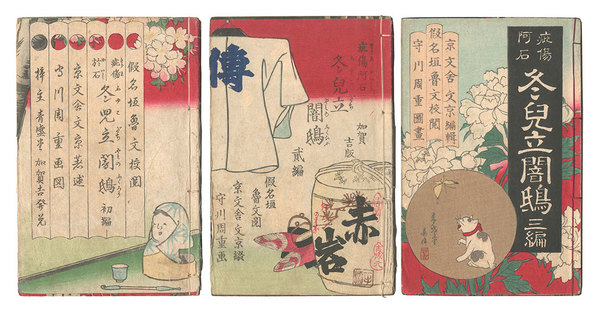 假名垣魯文校閲
疵傷
於石
冬兒立闇鴟
初編
京文舎文京著述
守川周重画図
青盛堂加賀吉發兌
傳
疵傷阿石
冬兒立
闇鴟
貳編
加賀
吉版
假名垣
魯文閲
京文舎文京綴
守川周重画
赤
岩
疵傷
阿石
冬兒立闇鴟
三編
京文舎文京編輯
假名垣魯文校閲
守川周重圖畫